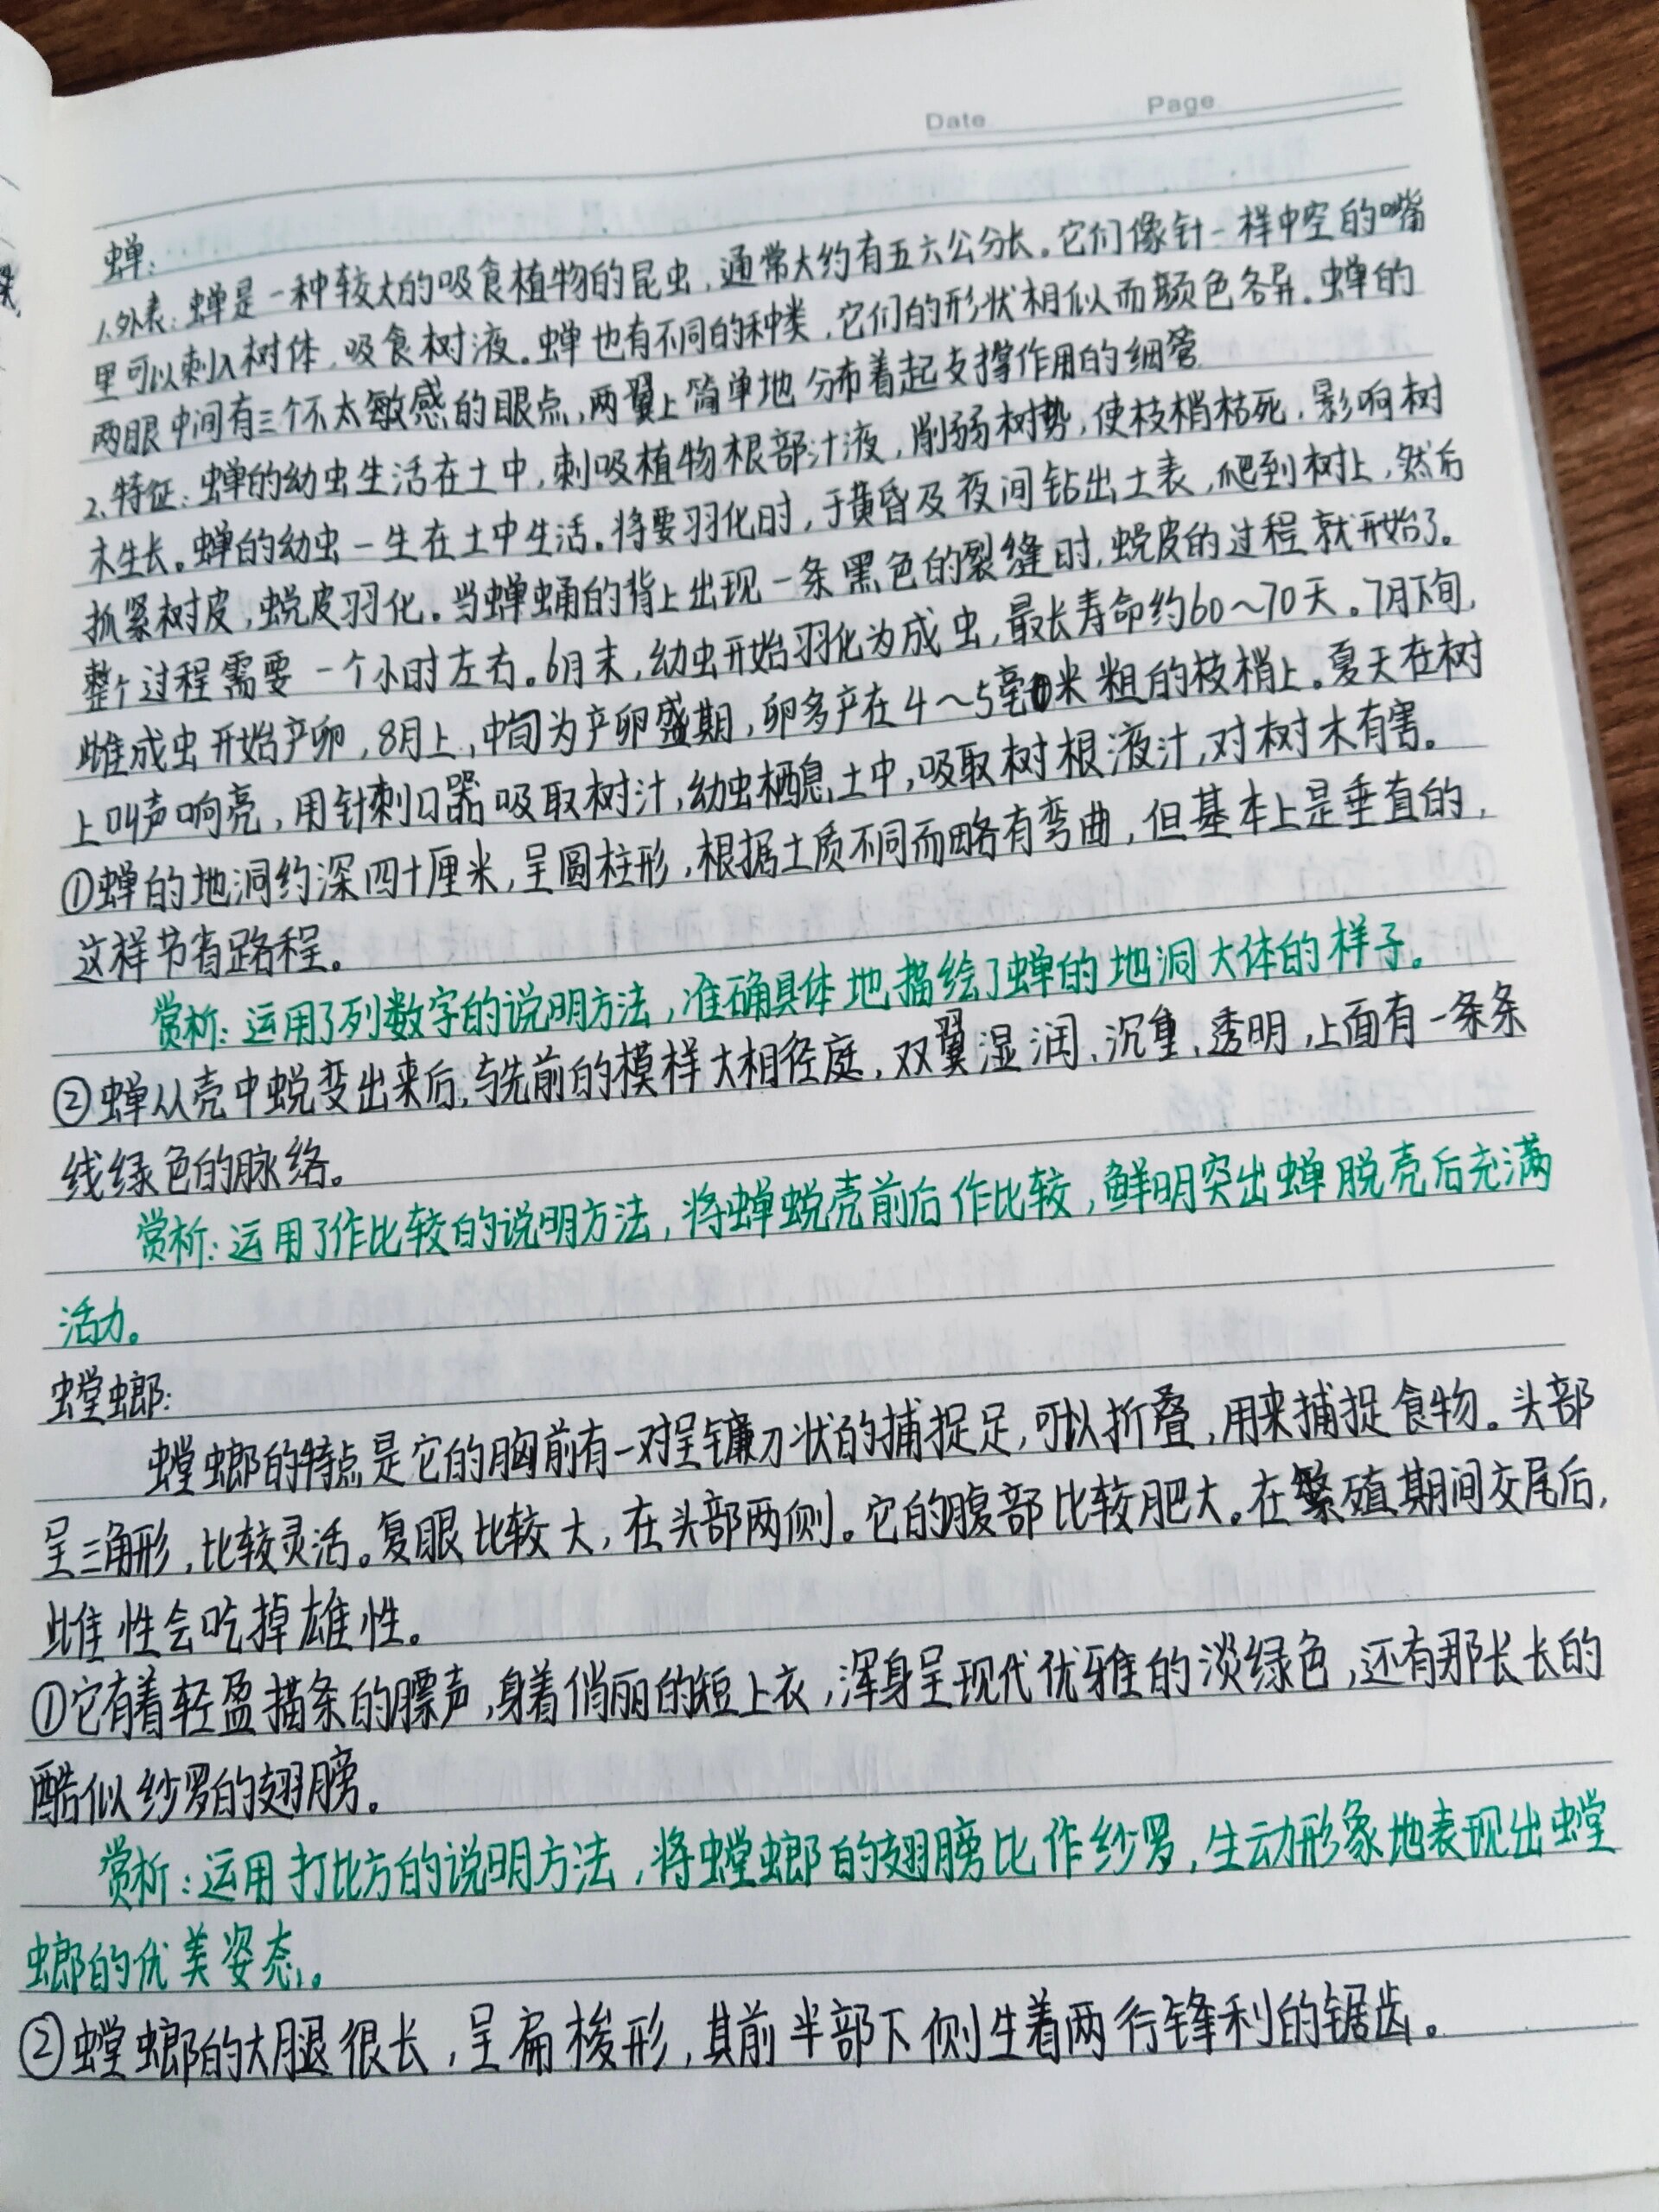 Date Page
蝉：
1.外表：蝉是一种较大的吸食植物的昆虫，通常大约有五六公分长。它们像针一样中空的嘴
里可以刺入树体，吸食树液。蝉也有不同的种类，它们的形状相似而颜色各异。蝉的
两眼中间有三个不太敏感的眼点，两翼上简单地分布着起支撑作用的细管
2.特征：蝉的幼虫生活在土中，刺吸植物根部汁液，削弱树势，使枝梢枯死，影响树
木生长。蝉的幼虫一生在土中生活。将要羽化时，于黄昏及夜间钻出土表，爬到树上，然后
抓紧树皮，蜕皮羽化。当蝉蛹的背上出现一条黑色的裂缝时，蜕皮的过程就开始了。
整个过程需要一个小时左右。6月末，幼虫开始羽化为成虫，最长寿命约60～70天。7月下旬，
雌成虫开始产卵，8月上、中旬为产卵盛期，卵多产在4～5毫米粗的枝梢上。夏天在树
上叫声响亮，用针刺口器吸取树汁，幼虫栖息土中，吸取树根液汁，对树木有害。
①蝉的地洞约深四十厘米，呈圆柱形，根据土质不同而略有弯曲，但基本上是垂直的，
这样节省路程。
赏析：运用了列数字的说明方法，准确具体地描绘了蝉的地洞大体的样子。
②蝉从壳中蜕变出来后，与先前的模样大相径庭，双翼湿润、沉重、透明，上面有一条条
线绿色的脉络。
赏析：运用了作比较的说明方法，将蝉蜕壳前后作比较，鲜明突出蝉脱壳后充满
活力。
螳螂：
螳螂的特点是它的胸前有一对呈镰刀状的捕捉足，可以折叠，用来捕捉食物。头部
呈三角形，比较灵活。复眼比较大，在头部两侧。它的腹部比较肥大。在繁殖期间交尾后，
雌性会吃掉雄性。
①它有着轻盈描条的膘声，身着俏丽的短上衣，浑身呈现代优雅的淡绿色，还有那长长的
酷似纱罗的翅膀。
赏析：运用打比方的说明方法，将螳螂的翅膀比作纱罗，生动形象地表现出螳
螂的优美姿态。
②螳螂的大腿很长，呈扁梭形，其前半部下侧生着两行锋利的锯齿。